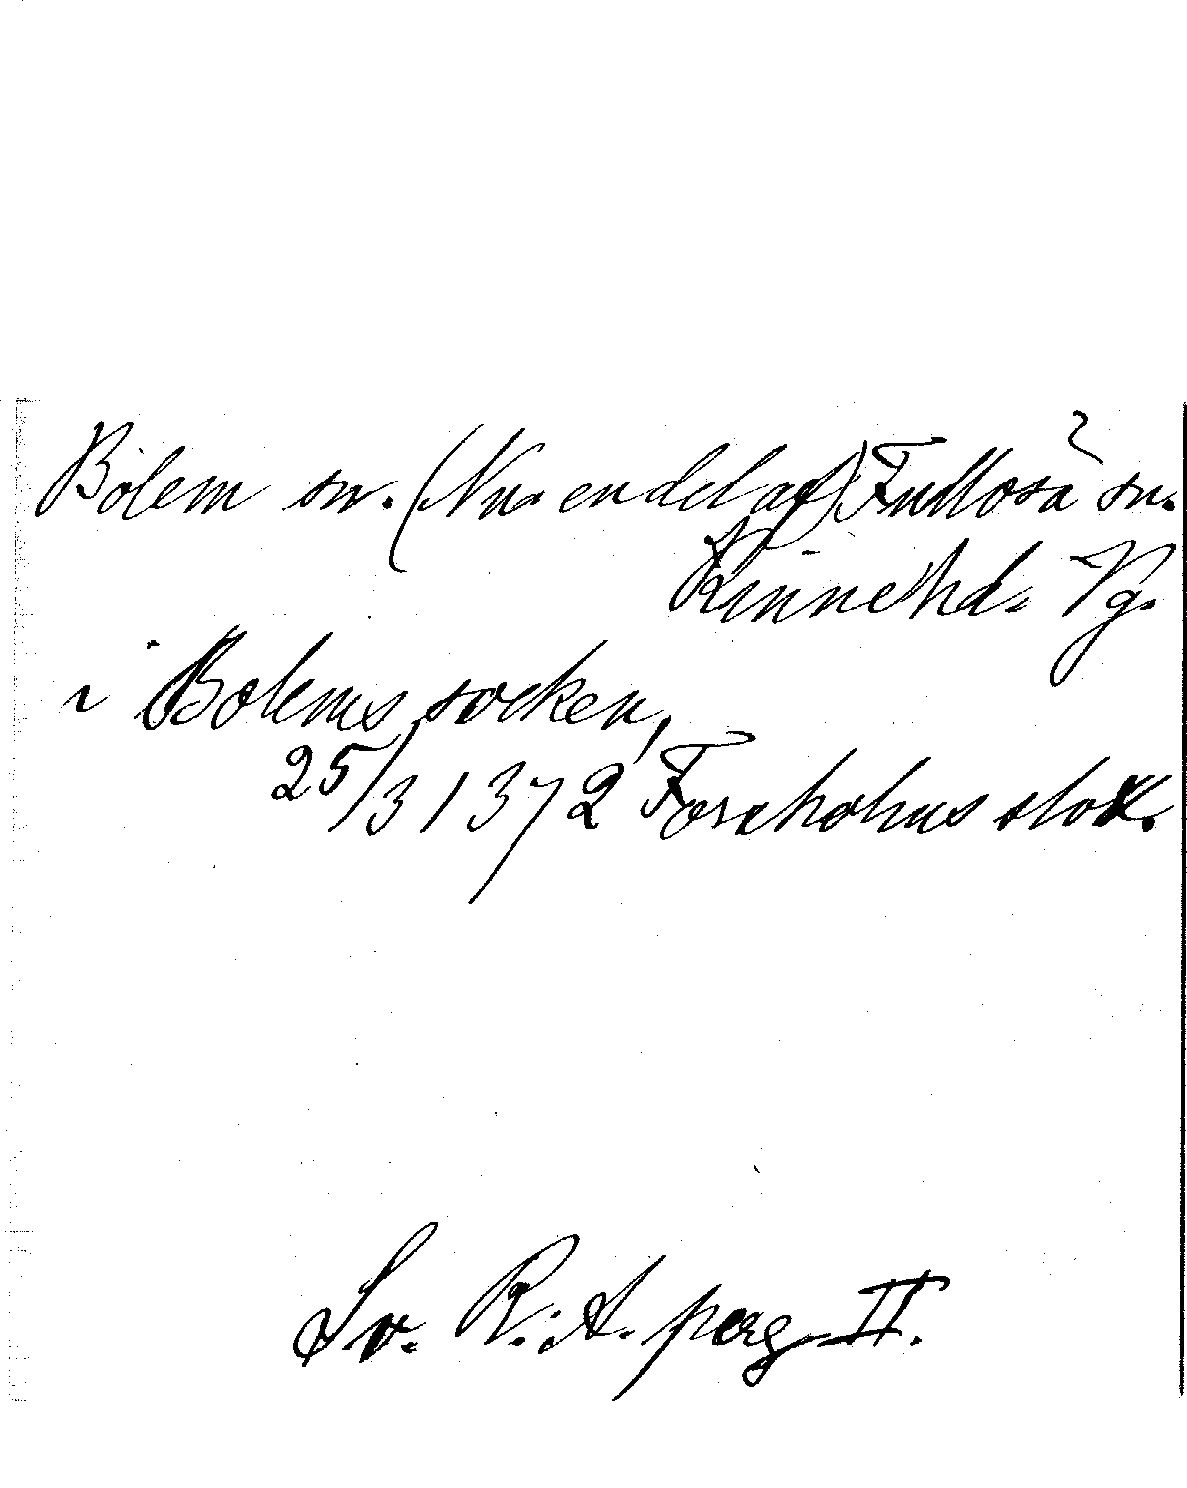 Bolem sn. (Nu en del af) Fullosa sn.
Kinne hd. Vg.
i Bolems socken,
25/3 1372 Forshohus slott.
Sv. R. A. perg. II.